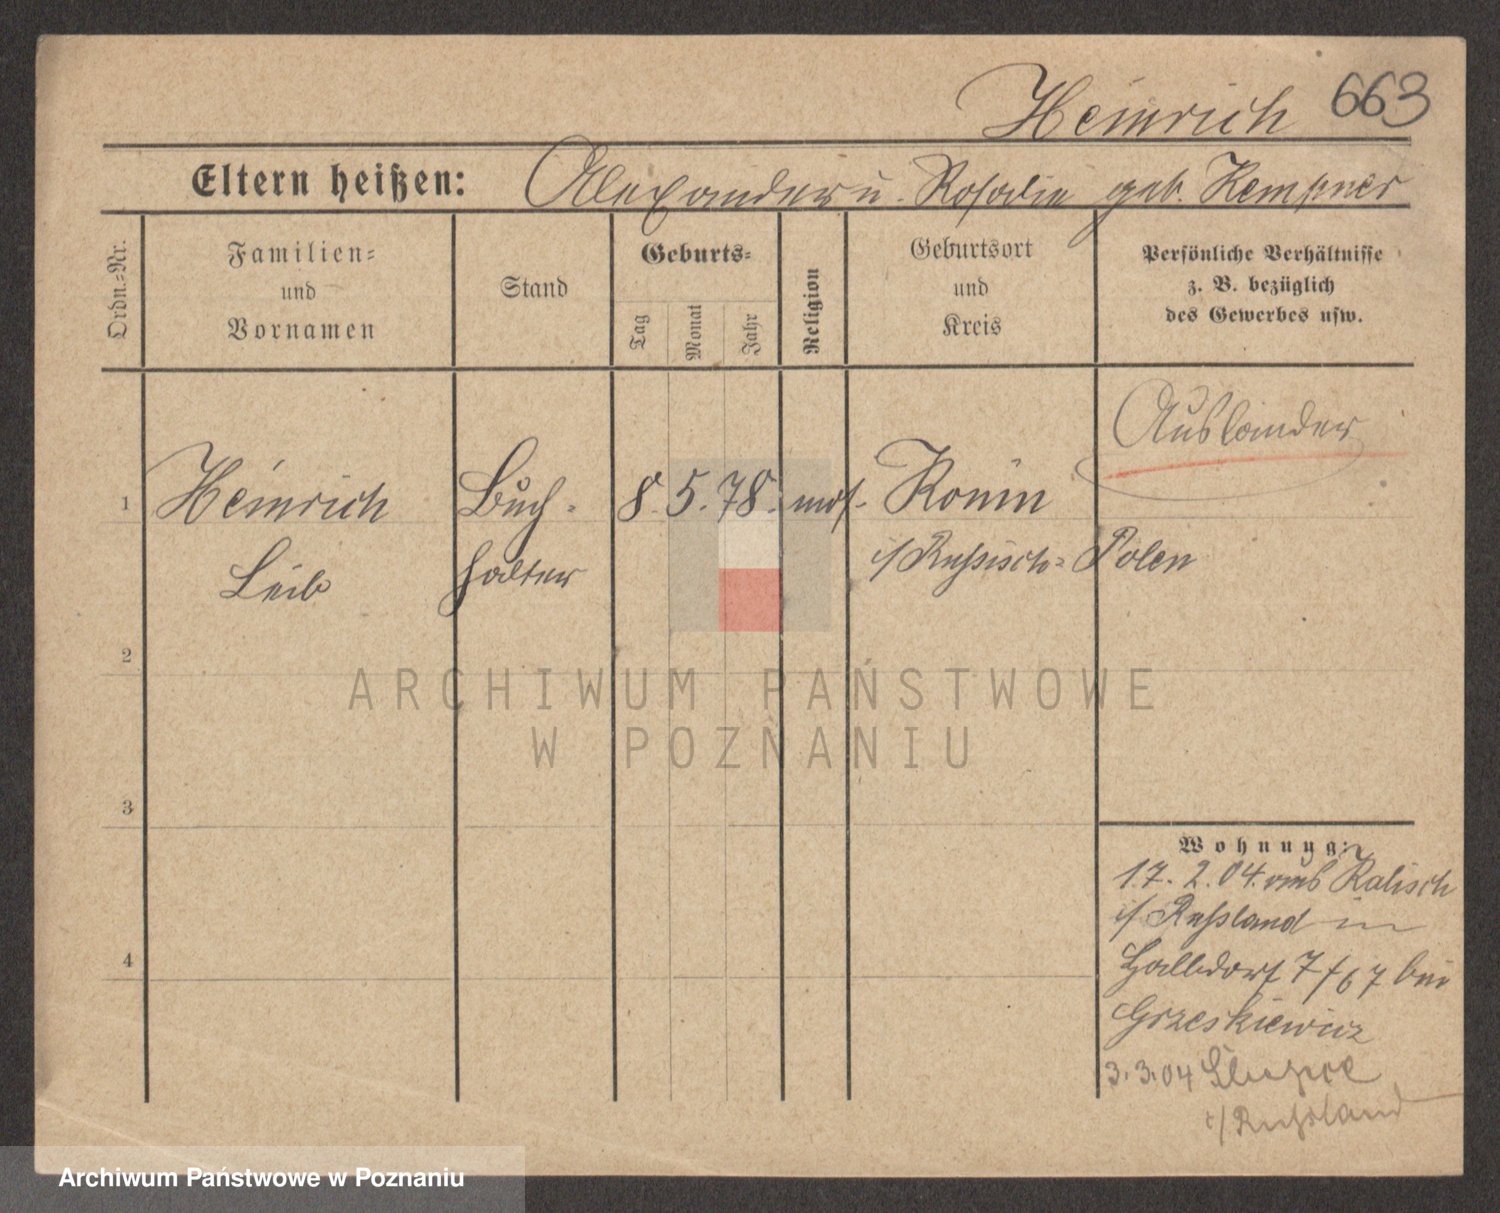 Heinrich 663
Eltern heißen: Alexander u. Rosalie geb. Kempner
Ordn.-Nr.
Familien-
und
Vornamen
Stand
Geburts-
Tag
Monat
Jahr
Religion
Geburtsort
und
Kreis
Persönliche Verhältnisse
z. B. bezüglich
des Gewerbes usw.
Ausländer
1 Heinrich Buch- 8. 5. 78. mos. Konin
Leib halter i/ Russisch- Polen
2
3
4
ARCHIWUM PAŃSTWOWE
W POZNANIU
Wohnung:
17. 2. 04. aus Kalisch
i/ Russland in
Halbdorf 7 bei
Grzeskiewicz
3.3.04 Slupce
i/ Russland
Archiwum Państwowe w Poznaniu